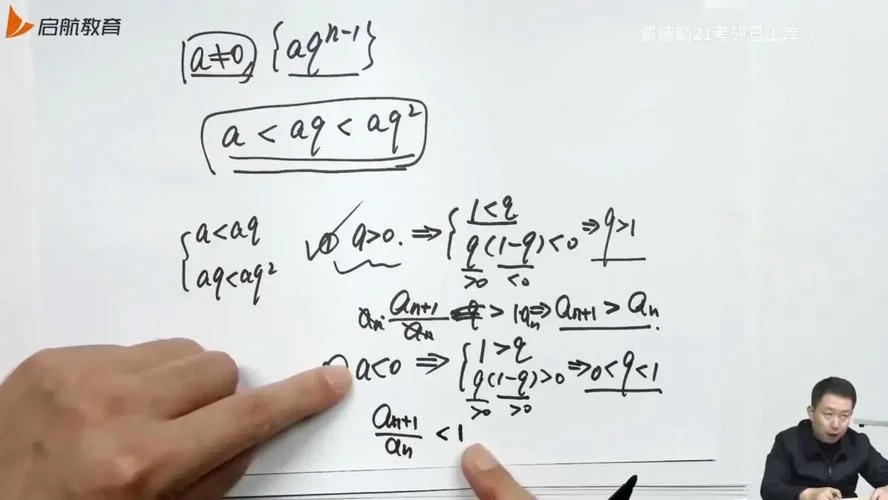 启航教育
费德勒21考研已上岸
a≠0, {aqⁿ⁻¹}
a < aq < aq²
{a<aq
aq<aq²
① a>0. ⇒ {1<q
q(1-q)<0 ⇒ q>1
>0 <0
aₙ· aₙ₊₁/aₙ > 1·aₙ ⇒ aₙ₊₁ > aₙ.
a<0 ⇒ {1>q
q(1-q)>0 ⇒ 0<q<1
>0 >0
aₙ₊₁/aₙ < 1